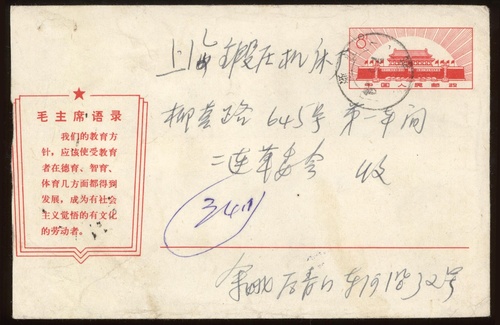 上海锻压机床厂
8
中国人民邮政
毛主席语录
我们的教育方
针，应该使受教育
者在德育、智育、
体育几方面都得到
发展，成为有社会
主义觉悟的有文化
的劳动者。
柳营路645号第一车间
二连革委会 收
余姚
32号